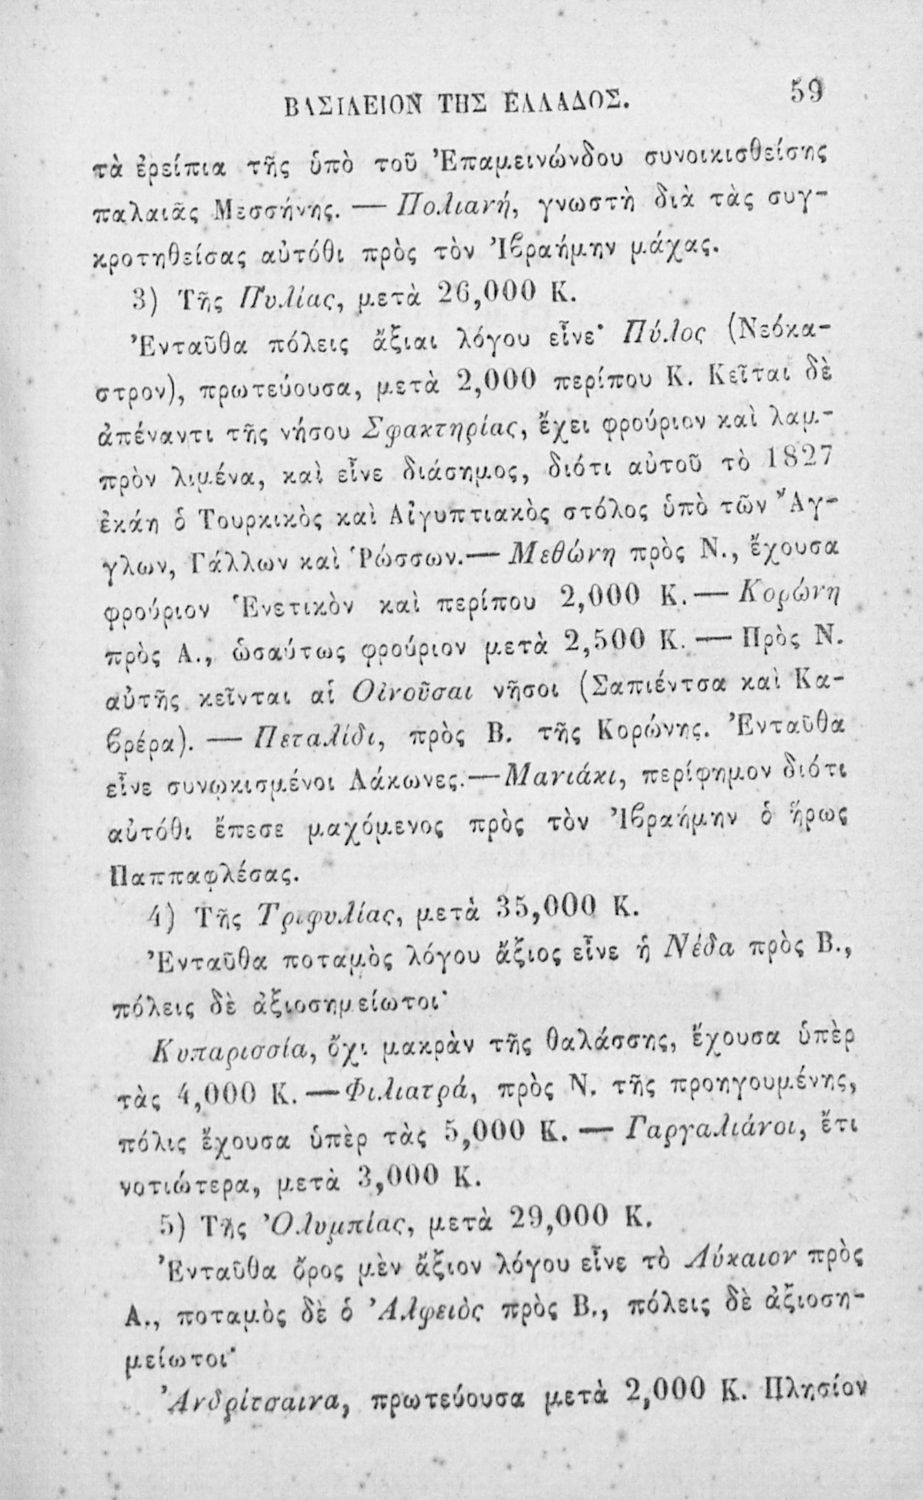 ΒΑΣΙΛΕΙΟΝ ΤΗΣ ΕΛΛΑΔΟΣ. 59
τὰ ἐρείπια τῆς ὑπὸ τοῦ Ἐπαμεινώνδου συνοικισθείσης
παλαιᾶς Μεσσήνης. — Πολιανή, γνωστὴ διὰ τὰς συγ-
κροτηθείσας αὐτόθι πρὸς τὸν Ἰβραήμην μάχας.
3) Τῆς Πυλίας, μετὰ 26,000 Κ.
Ἐνταῦθα πόλεις ἄξιαι λόγου εἶνε· Πύλος (Νεόκα-
στρον), πρωτεύουσα, μετὰ 2,000 περίπου Κ. Κεῖται δὲ
ἀπέναντι τῆς νήσου Σφακτηρίας, ἔχει φρούριον καὶ λαμ-
πρὸν λιμένα, καὶ εἶνε διάσημος, διότι αὐτοῦ τὸ 1827
ἐκάη ὁ Τουρκικὸς καὶ Αἰγυπτιακὸς στόλος ὑπὸ τῶν Ἄγ-
γλων, Γάλλων καὶ Ῥώσσων.— Μεθώνη πρὸς Ν., ἔχουσα
φρούριον Ἑνετικὸν καὶ περίπου 2,000 Κ.— Κορώνη
πρὸς Α., ὡσαύτως φρούριον μετὰ 2,500 Κ. — Πρὸς Ν.
αὐτῆς κεῖνται αἱ Οἰνοῦσαι νῆσοι (Σαπιέντσα καὶ Κα-
βρέρα). — Πεταλίδι, πρὸς Β. τῆς Κορώνης. Ἐνταῦθα
εἶνε συνῳκισμένοι Λάκωνες.—Μανιάκι, περίφημον διότι
αὐτόθι ἔπεσε μαχόμενος πρὸς τὸν Ἰβραήμην ὁ ἥρως
Παππαφλέσας.
4) Τῆς Τριφυλίας, μετὰ 35,000 Κ.
Ἐνταῦθα ποταμὸς λόγου ἄξιος εἶνε ἡ Νέδα πρὸς Β.,
πόλεις δὲ ἀξιοσημείωτοι·
Κυπαρισσία, ὄχι μακρὰν τῆς θαλάσσης, ἔχουσα ὑπὲρ
τὰς 4,000 Κ.—Φιλιατρά, πρὸς Ν. τῆς προηγουμένης,
πόλις ἔχουσα ὑπὲρ τὰς 5,000 Κ. — Γαργαλιάνοι, ἔτι
νοτιώτερα, μετὰ 3,000 Κ.
5) Τῆς Ὀλυμπίας, μετὰ 29,000 Κ.
Ἐνταῦθα ὄρος μὲν ἄξιον λόγου εἶνε τὸ Λύκαιον πρὸς
Α., ποταμὸς δὲ ὁ Ἀλφειὸς πρὸς Β., πόλεις δὲ ἀξιοση-
μείωτοι·
Ἀνδρίτσαινα, πρωτεύουσα μετὰ 2,000 Κ. Πλησίον